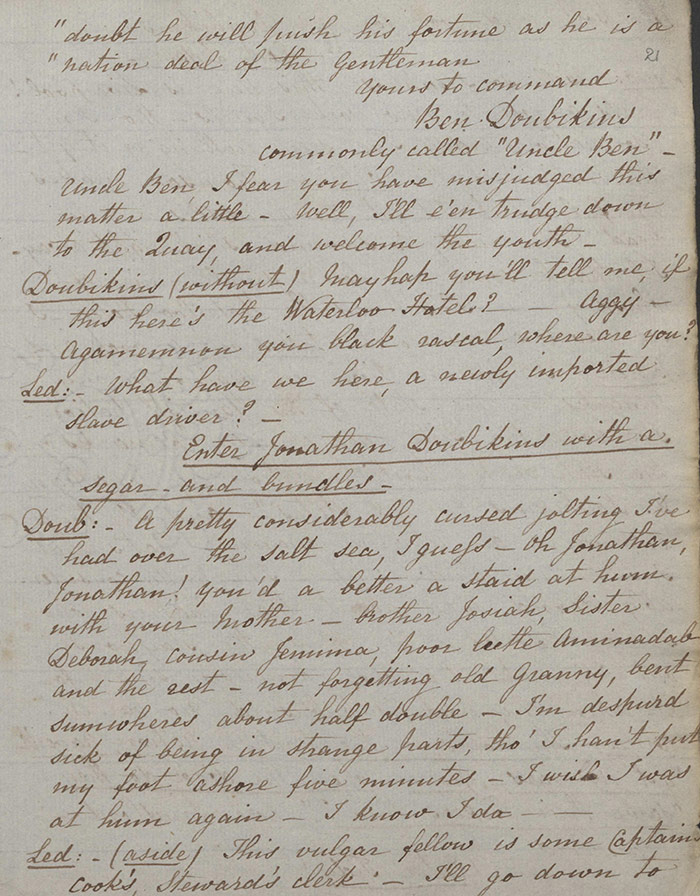 "doubt he will push his fortune as he is a
"nation deal of the Gentleman 21
Yours to command
Ben Doubikins
commonly called "Uncle Ben" -
Uncle Ben, I fear you have misjudged this
matter a little - Well, I'll e'en trudge down
to the Quay, and welcome the youth -
Doubikins (without) Mayhap you'll tell me, if
this here's the Waterloo Hotel? - Aggy -
Agamemnon you black rascal, where are you?
Led:- What have we here, a newly imported
slave driver? -
Enter Jonathan Doubikins with a
segar - and bundles -
Doub:- A pretty considerably cursed jolting I've
had over the salt sea, I guess - Oh Jonathan,
Jonathan! you'd a better a staid at hum
with your Mother - brother Josiah, Sister
Deborah, cousin Jemima, poor leetle Aminadab
and the rest - not forgetting old Granny, bent
sumwheres about half double - I'm despurd
sick of being in strange parts, tho' I han't put
my foot ashore five minutes - I wish I was
at hum again - I know I do - -
Led:- (aside) This vulgar fellow is some Captain
Cook's, Steward's clerk - I'll go down to